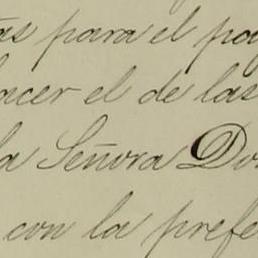 as para el pa
acer el de las
la Señora Do
con la prefe